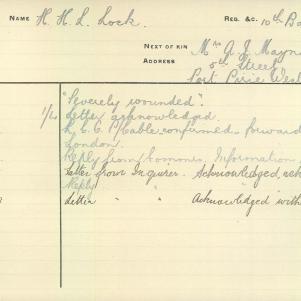 NAME H. H. L. Lock. REG. &C. 10th Ba
NEXT OF KIN Mrs A. J. Mayna
ADDRESS 5th Street
Port Pirie West
"Severely wounded".
1/ Letter acknowledged.
Cable confirmed forward
London.
Reply from Commons. Information
Letter from Inquirer. Acknowledged,
Reply
Letter " " Acknowledged with